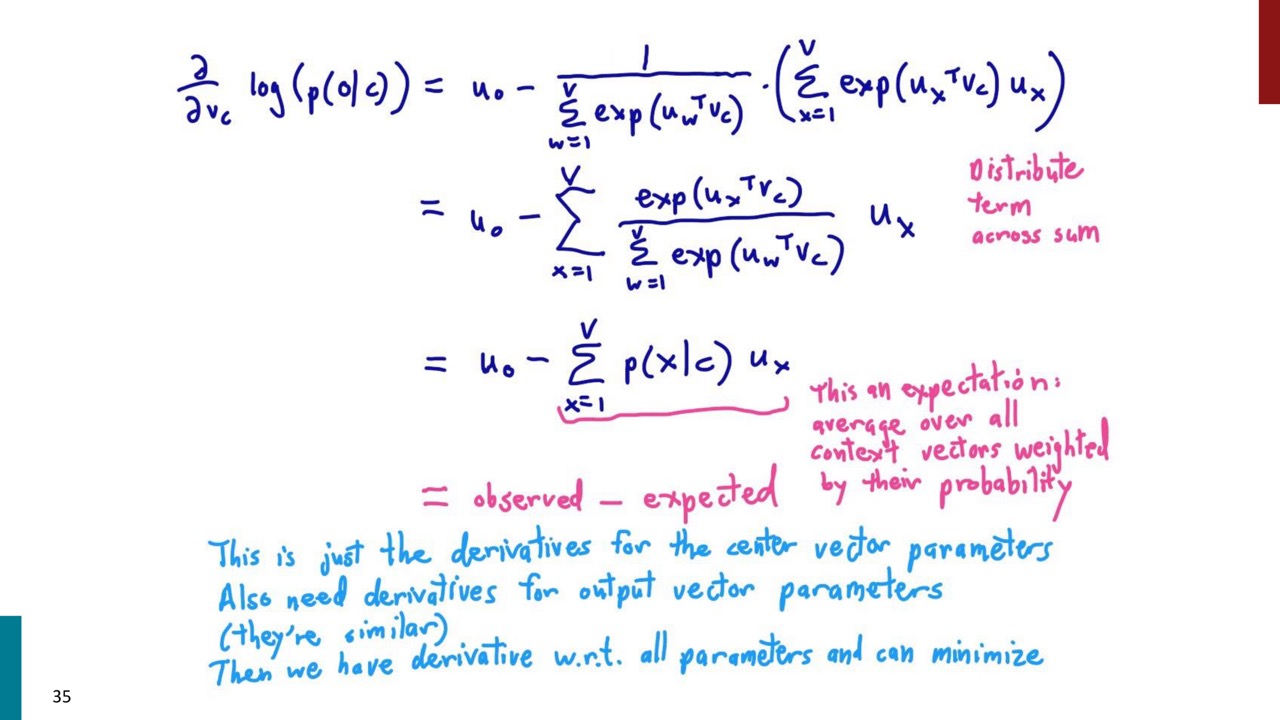 ∂/∂v_c log(p(o|c)) = u_o − 1 / (Σ_{w=1}^{V} exp(u_w^T v_c)) · (Σ_{x=1}^{V} exp(u_x^T v_c) u_x)
= u_o − Σ_{x=1}^{V} exp(u_x^T v_c) / (Σ_{w=1}^{V} exp(u_w^T v_c)) u_x
Distribute
term
across sum
= u_o − Σ_{x=1}^{V} p(x|c) u_x
This an expectation:
average over all
context vectors weighted
by their probability
= observed − expected
This is just the derivatives for the center vector parameters
Also need derivatives for output vector parameters
(they're similar)
Then we have derivative w.r.t. all parameters and can minimize
35